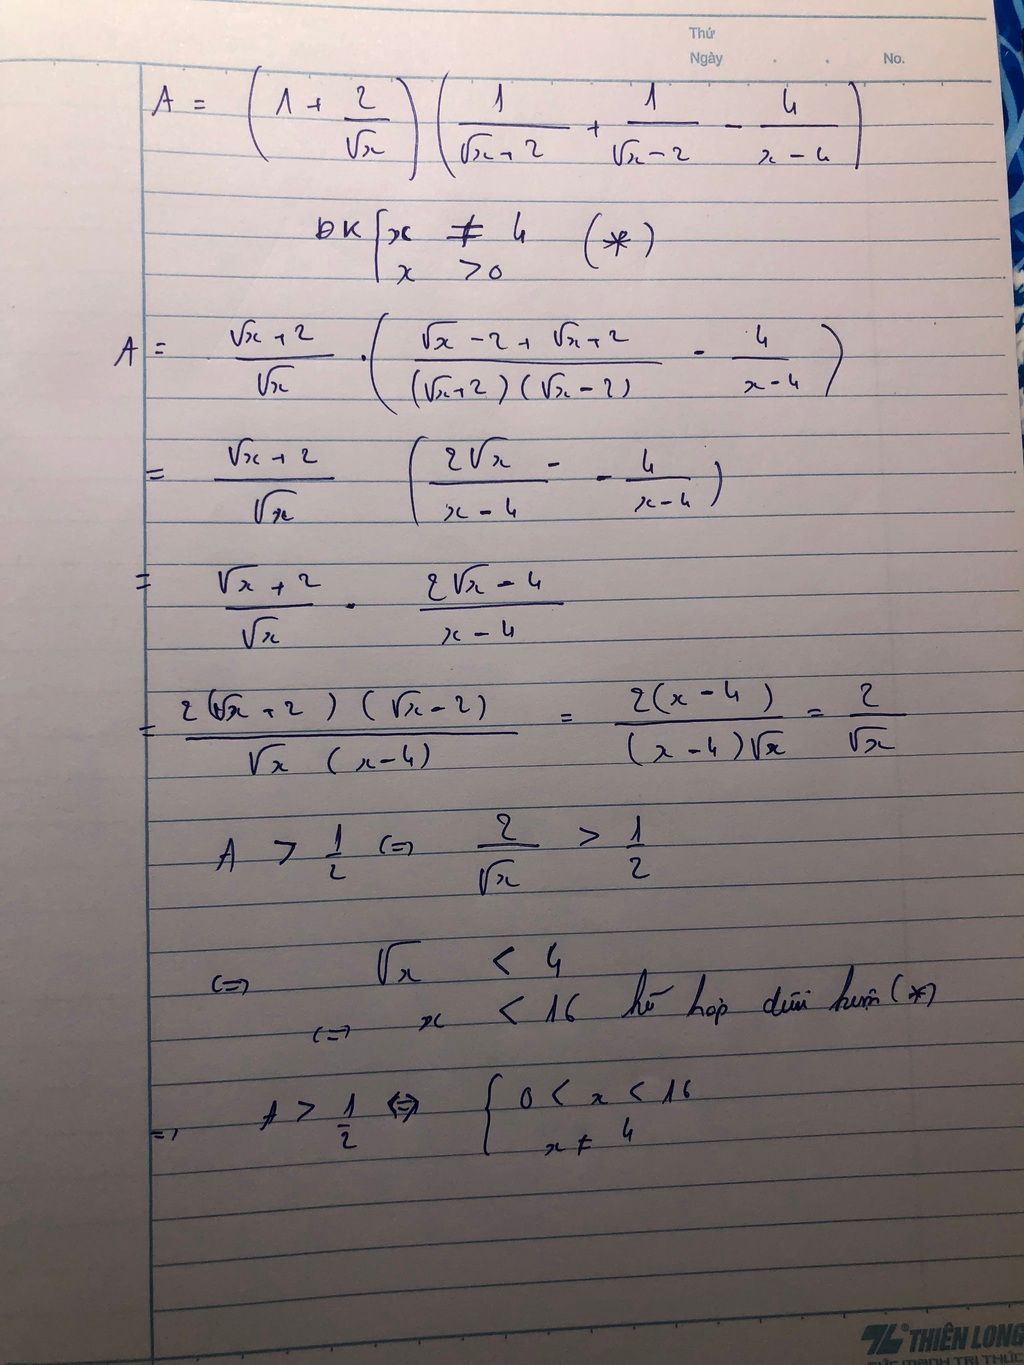 Thứ
Ngày . . No.
A = (1 + 2/√x) (1/(√x+2) + 1/(√x-2) - 4/(x-4))
ĐK { x ≠ 4 (*)
x > 0
A = (√x+2)/√x . ((√x-2+√x+2)/((√x+2)(√x-2)) - 4/(x-4))
= (√x+2)/√x (2√x/(x-4) - - 4/(x-4))
= (√x+2)/√x . (2√x-4)/(x-4)
= 2(√x+2)(√x-2)/(√x(x-4)) = 2(x-4)/((x-4)√x) = 2/√x
A > 1/2 <=> 2/√x > 1/2
<=> √x < 4
<=> x < 16 kết hợp điều kiện (*)
=> A > 1/2 <=> { 0 < x < 16
x ≠ 4
THIÊN LONG